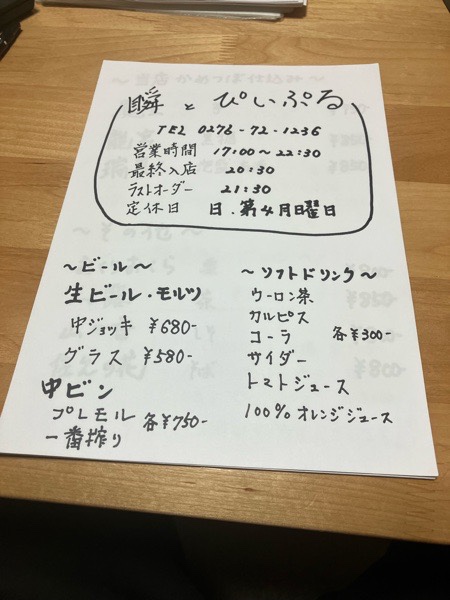 瞬とぴいぷる
TEL 0276-72-1236
営業時間 17:00~22:30
最終入店 20:30
ラストオーダー 21:30
定休日 日.第4月曜日
~ビール~
生ビール・モルツ
中ジョッキ ¥680-
グラス ¥580-
中ビン
プレモル
一番搾り
各¥750-
~ソフトドリンク~
ウーロン茶
カルピス
コーラ
サイダー
トマトジュース
100%オレンジジュース
各¥300-